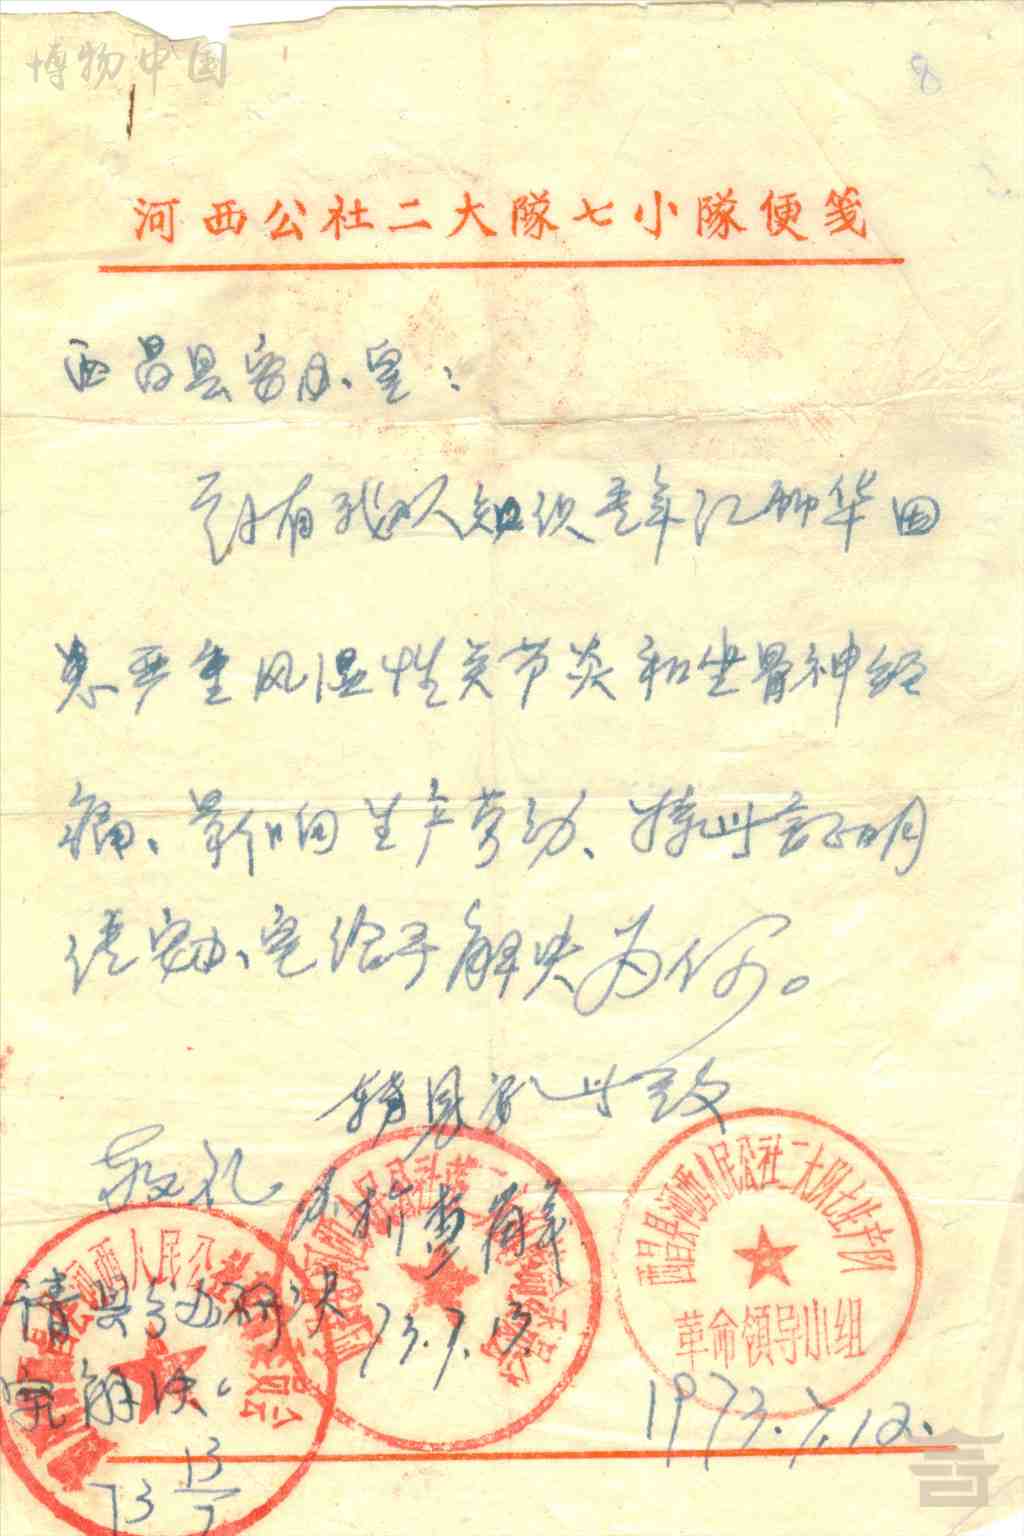 博物中国
8
河西公社二大隊七小隊便箋
西昌县安办室:
玆有我队知识青年江柳华因
患严重风湿性关节炎和坐骨神经
痛、影响生产劳动、特此证明
请安办室给予解决为何。
转县安 此致
敬礼
西昌县河西人民公社二大队七生产队
革命領导小组
请县安办研决
究解决。
73.7.13.
1973.7.12.
73 13/7